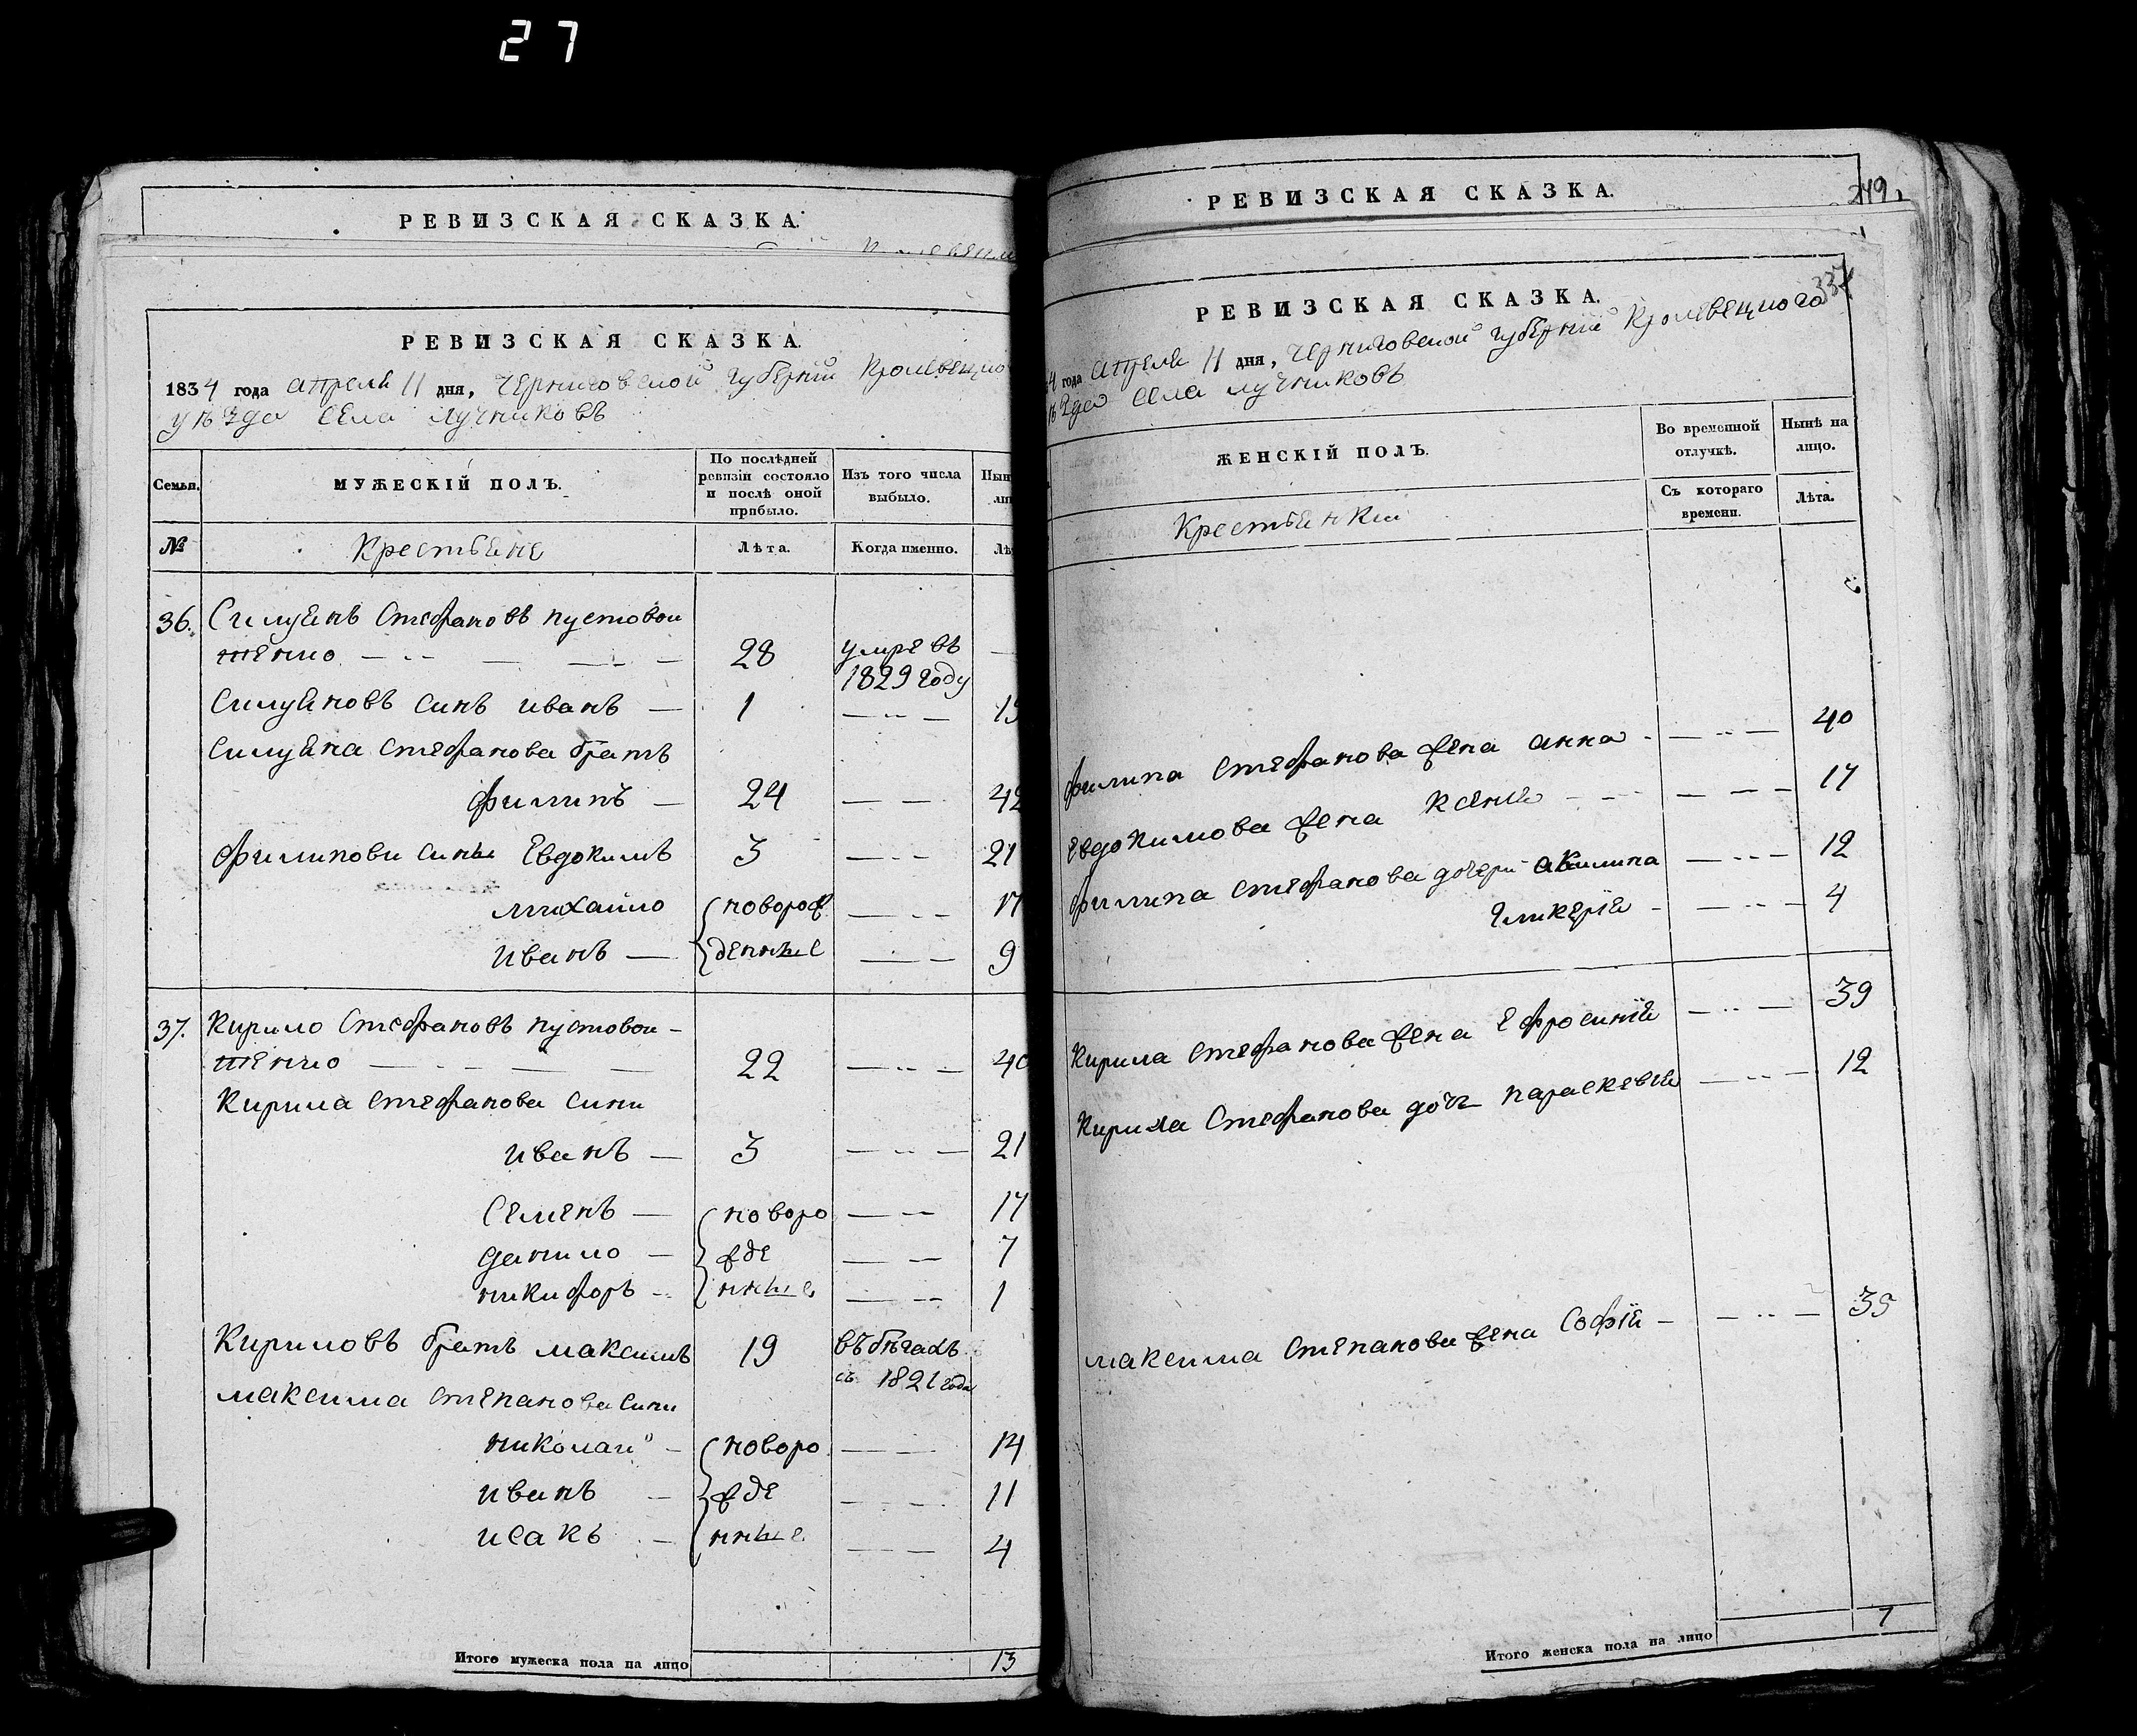 27
РЕВИЗСКАЯ СКАЗКА.
РЕВИЗСКАЯ СКАЗКА.
1834 года апреля 11 дня, Черниговской губернии Кролевецко
уѣзда села Лучниковъ
Семьи. МУЖЕСКІЙ ПОЛЪ. По послѣдней ревизіи состояло и послѣ оной прибыло. Изъ того числа выбыло. Нын
№ Крестьяне Лѣта. Когда именно. Лѣ
36. Силуянъ Стефановъ Пустовои
тенко 28 умре въ 1829 году
Силуяновъ синъ Иванъ — 1 15
Силуяна Стефанова братъ
Филипъ — 24 42
Филипови сини Евдокимъ 3 21
Михайло новорож 17
Иванъ — денные 9
37. Кирило Стефановъ Пустовои-
тенко 22 40
Кирила Стефанова сини
Иванъ — 3 21
Семенъ — новоро 17
Данило — жде 7
Никифоръ нные 1
Кириловъ братъ Максимъ 19 въ бѣгахъ
съ 1821 года
Максима Степанова сини
Николай новоро 14
Иванъ жде 11
Исакъ нные 4
Итого мужеска пола на лицо 13
РЕВИЗСКАЯ СКАЗКА.
249
РЕВИЗСКАЯ СКАЗКА.
337
4 года апреля 11 дня, Черниговской губернии Кролевецкого
ѣзда села Лучниковъ
ЖЕНСКІЙ ПОЛЪ. Во временной отлучкѣ. Нынѣ на лицо.
Крестьянки Съ котораго времени. Лѣта.
Филипа Стефанова жена Анна 40
Евдокимова жена Ксения 17
Филипа Стефанова дочери Акилина 12
Гликерія 4
Кирила Стефанова жена Ефросинія 39
Кирила Стефанова дочь Параскевія 12
Максима Степанова жена Софія — 35
Итого женска пола на лицо 7